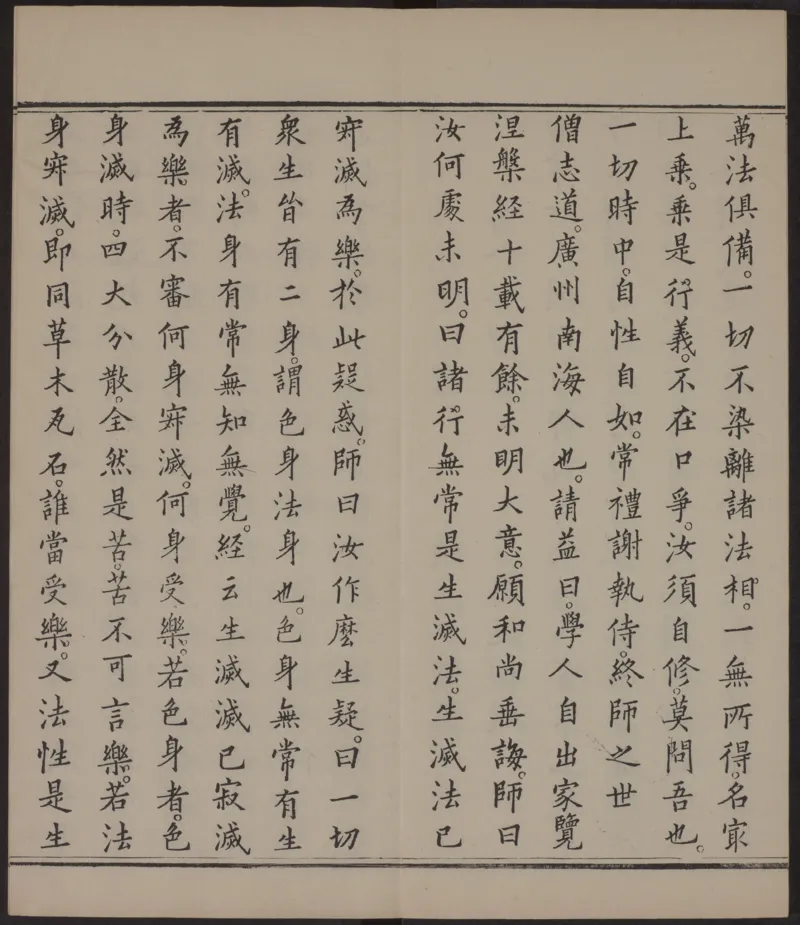 萬法俱備。一切不染離諸法相。一無所得。名冣
上乗。乗是行義。不在口爭。汝須自修。莫問吾也。
一切時中。自性自如。常禮謝執侍。終師之世
僧志道。廣州南海人也。請益曰。學人自出家覽
涅槃経十載有餘。未明大意。願和尚垂誨。師曰
汝何處未明。曰諸行無常是生滅法。生滅法已
㝛滅為樂。於此疑惑。師曰汝作麼生疑。曰一切
衆生皆有二身。謂色身法身也。色身無常有生
有滅。法身有常無知無覺。経云生滅滅已寂滅
為樂者。不審何身㝛滅。何身受樂。若色身者。色
身滅時。四大分散。全然是苦。苦不可言樂。若法
身㝛滅。即同草木瓦石。誰當受樂。又法性是生